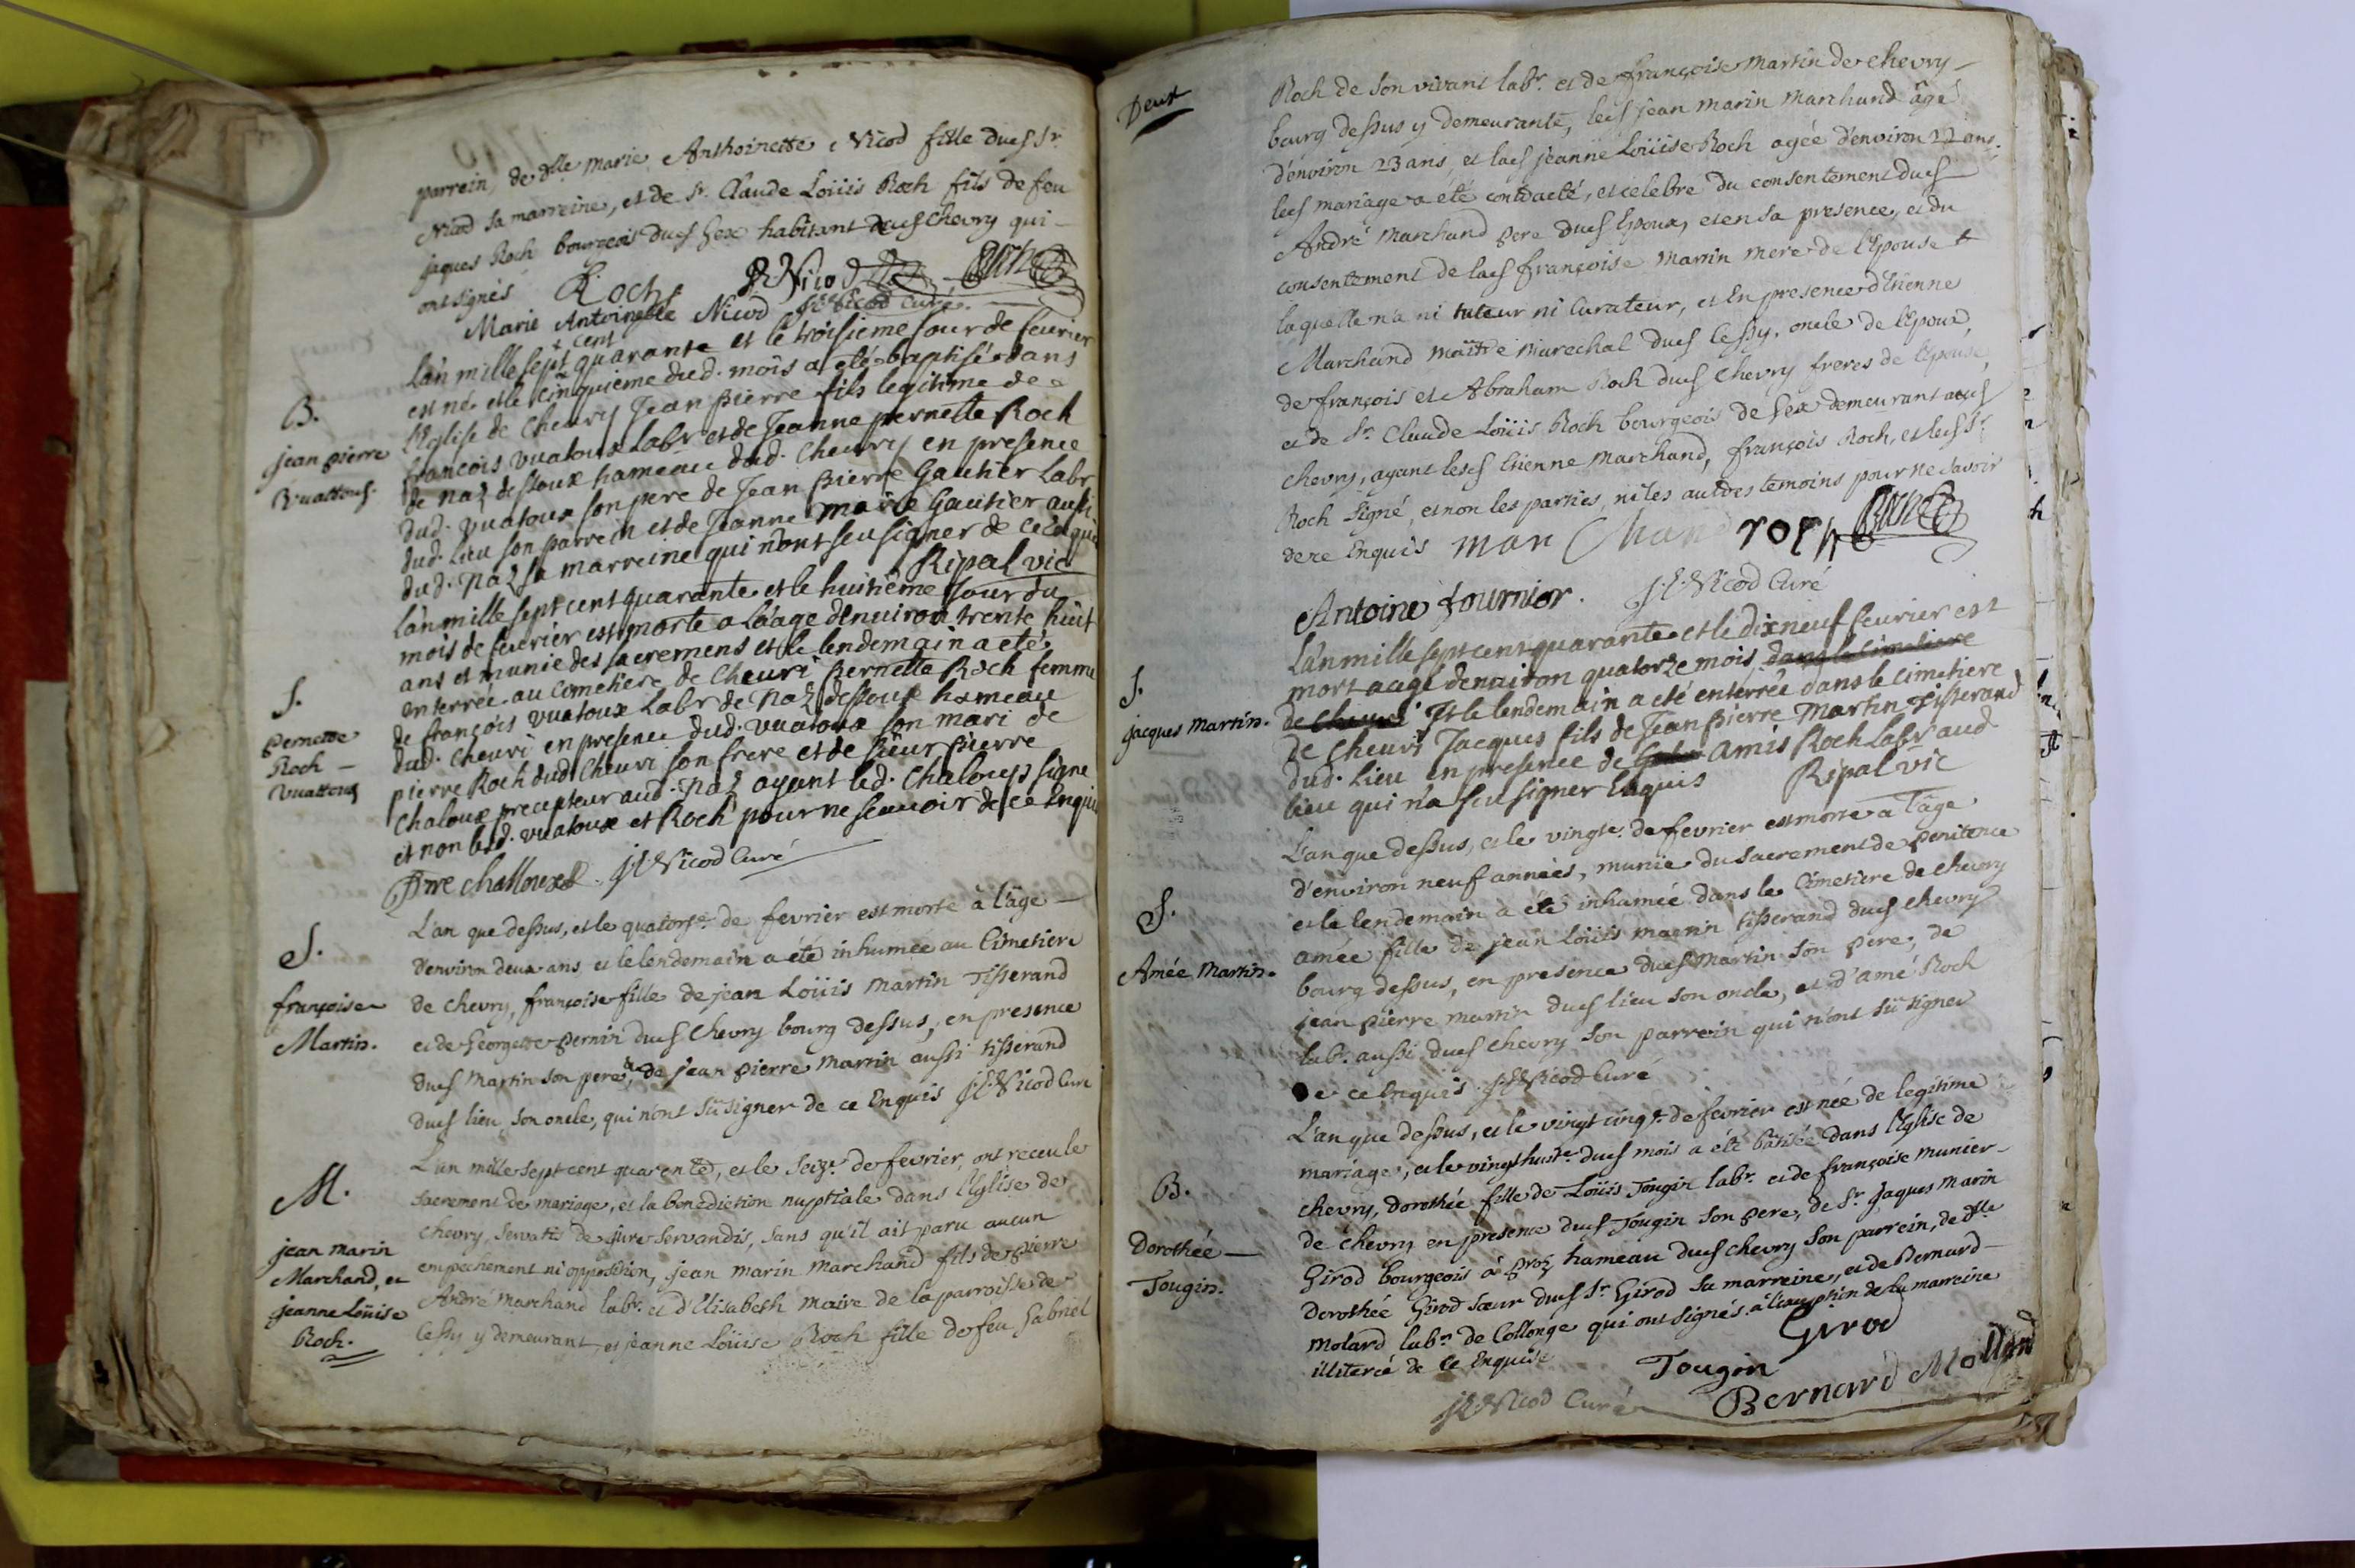 parrein, de dlle Marie Anthoinette Nicod fille dud Sr
Nicod sa marreine, et de Sr. Claude Loüis Roch fils de feu
jaques Roch bourgeois dud Gex habitant aud Chevry qui
ont signés Roch J. Nicod Roch
Marie Antoinette Nicod J. L. Nicod Curé.
B.
jean pierre
Vuattoux.
L'an mille sept cent quarante et le troisieme jour de feurier
est né et le cinquieme dud. mois a eté baptisé dans
l'Eglise de Cheury Jean pierre fils legitime de
francois vuatoux labr et de Jeanne pernette Roch
de naz dessoux hameau dud. Cheury en presence
dud. vuatoux son pere de Jean pierre Gautier labr
dud. lieu son parrein et de Jeanne marie Gautier aussi
dud. naz sa marreine qui n'ont sceu signer de ce enquis
Ripal vic
S.
pernette
Roch –
Vuattoux
L'an mille sept cent quarante et le huitieme jour du
mois de feurier est morte a l'aage denuiron trente huit
ans et munie des sacremens et le lendemain a eté
enterrée au cimetiere de Cheuri Pernette Roch femme
de françois vuatoux labr de naz dessoux hameau
dud. Cheuri en presence dud. vuatoux son mari de
pierre Roch dud Cheuri son frere et de sieur pierre
Chaloux precepteur aud. naz ayant led. Chaloux signe
et non lesd. vuatoux et Roch pour ne sçauoir de ce enquis
Pre challoux J. L. Nicod Curé
S.
françoise
Martin.
L'an que dessus, et le quatorze. de fevrier est morte à l'âge –
d'environ deux ans et le lendemain a été inhumée au Cimetiere
de Chevry, françoise fille de jean Loüis Martin Tisserand
et de Georgette Pernin dud Chevry bourg dessus, en presence
dud Martin son pere, & de jean Pierre Martin aussi tisserand
dud lieu, son oncle, qui n'ont sü signer de ce Enquis J. L. Nicod Curé
M.
jean Marin
Marchand, et
jeanne Loüise
Roch.
L'an mille sept cent quarente, et le seize. de fevrier, ont receu le
sacrement de mariage, et la benediction nuptiale dans l'Eglise de
Chevry, servatis de jure servandis, sans qu'il ait paru aucun
empechement ni opposition, jean Marin Marchand fils de Pierre
André Marchand labr. et d'Elisabeth Maire de la parroisse de
Cessy y demeurant, et jeanne Loüise Roch fille de feu Gabriel
Deux
Roch de son vivant labr. et de françoise Martin de Chevry –
bourg dessus y demeurante, led jean Marin Marchand âgé
d'environ 23 ans, et lad jeanne Loüise Roch agée d'environ 22 ans.
led mariage a eté contracté, et celebré du consentement dud
André Marchand pere dud Epoux, et en sa presence, et du
consentement de lad françoise Martin mere de l'Epouse
laquelle n'a ni tuteur ni Curateur, et En presence d'Etienne
Marchand Maître Marechal dud Cessy, oncle de l'Epoux,
de françois et Abraham Roch dud Chevry freres de l'Epouse,
et de Sr. Claude Loüis Roch bourgeois de Gex demeurant aud
Chevry, ayant lesd Etienne Marchand, françois Roch, et led Sr.
Roch signé, et non les parties, ni les autres temoins pour ne savoir
de ce Enquis mar Chand roch Roch
Antoine fournier. J. L. Nicod Curé
S.
jacques Martin.
L'an mille sept cent quarante et le dix neuf feurier est
mort aagé denuiron quatorze mois dans le cimetiere
de Cheuri Et le lendemain a eté enterrée dans le cimetiere
de Cheuri Jacques fils de Jean pierre Martin Tisserand
dud. lieu en presence de amis Roch labr aud
lieu qui n'a sceu signer Enquis Ripal vic
S.
Amée Martin.
L'an que dessus, et le vingte. de fevrier est morte a l'âge
d'environ neuf années, munie du sacrement de penitence
et le lendemain a été inhumée dans le Cimetiere de Chevry
amée fille de jean Loüis Martin tisserand dud Chevry
bourg dessus, en presence dud Martin son pere, de
jean Pierre Martin dud lieu son oncle, et d'amé Roch
labr. aussi dud Chevry son parrein qui n'ont sü signer
de ce Enquis J. L. Nicod Curé
B.
Dorothée –
Tougin.
L'an que dessus, et le vingt cinqe. de fevrier est née de legitime
mariage, et le vingt huite. dud mois a été bâtisée dans l'Eglise de
Chevry, Dorothée fille de Loüis Tougin labr. et de françoise Munier –
de Chevry en presence dud Tougin son pere, de Sr. Jaques Marin
Girod bourgeois à hameau dud Chevry son parrein, de dlle
Dorothée Girod sœur dud Sr. Girod sa marreine, et de Bernard –
Molard labr. de Collonge qui ont signés à l'exception de la marreine
illiterée de ce Enquise Girod
Tougin
J. L. Nicod Curé Bernard Mollard